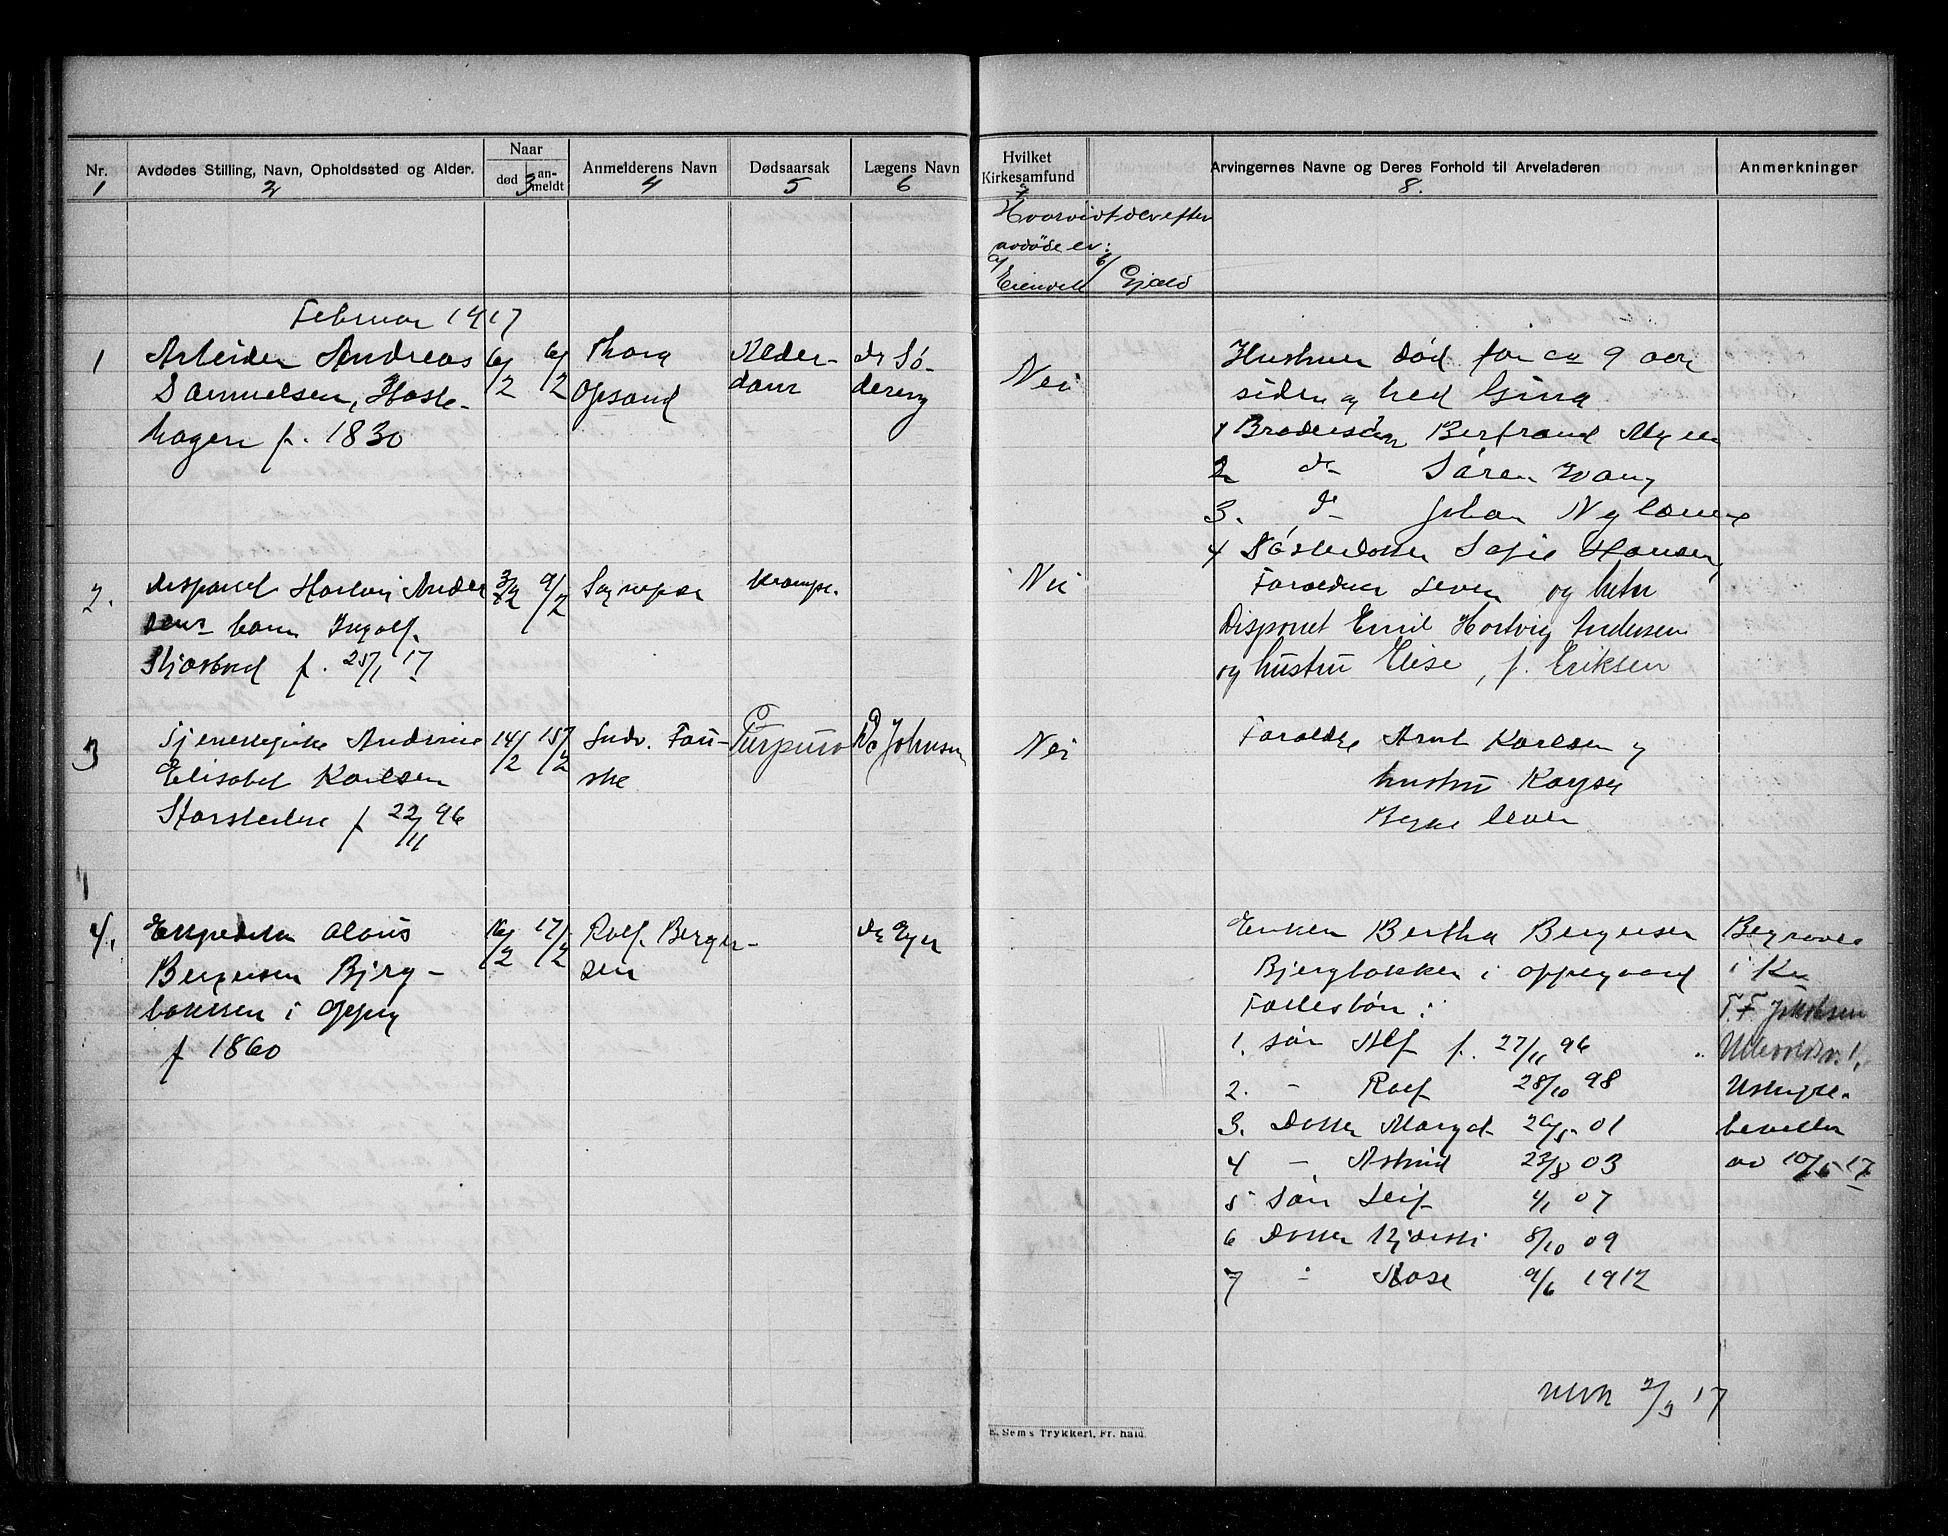 Nr. Avdødes Stilling, Navn, Opholdssted og Alder. Naar død anmeldt Anmelderens Navn Dødsaarsak Lægens Navn Hvilket Kirkesamfund Arvingernes Navne og Deres Forhold til Arveladeren Anmerkninger
1 2 3 4 5 6 7 8.
Hvorvidt der efter
avdøde er:
a/ b/
Eiendele Gjæld
Februar 1917
1 Arbeider Andreas 6/2 6/2 Thora Alder- dr Sö- Nei Hustruen död for ca 9 aar
Samuelsen, Hasle- Opsand dom dereng siden og hed Gina
hagen f. 1830 1 Brodersön Bertrand Myen
2 do Sören Wang
3. do Johan Nylænne
4 Sösterdatter Sofie Hansen
2. Disponent Hartvig Ander 3/2 9/2 Krampe. Nei Foreldrene lever og heter
sens barn Ingolf. Disponet Emil Hartvig Andersen
f. 25/1 17 og hustru Elise, f. Eriksen
3 Tjenestepike Andrine 14/2 15/2 Ludv. Fau- Purpura Dr Johnsen Nei Foreldre Arnt Karlsen og
Elisabet Karlsen ske hustru Kaysa
f 22/11 96 Begge lever
4. Expeditør Olaus 16/2 17/2 Rolf Berger- dr Eger Enken Bertha Bergersen Begraves
Bergersen Bjerg- sen Bjergbakken i Oppegaard i Kra
bakken i Oppeg Fællesbörn: T. F. Jakobsen
f 1860 1. Sön Alf f. 27/11 96
2. - Rolf 28/10 98 Uskifte-
3. Datter Margit 26/5 01 bevilling
4 - Astrid 23/8 03 av 10/5 17
5 Sön Leif 4/1 07
6 Datter Kjersti 8/10 09
7 - Aase 9/6 1912
2/3 17
E. Sem's Trykkeri, Fr. hald.